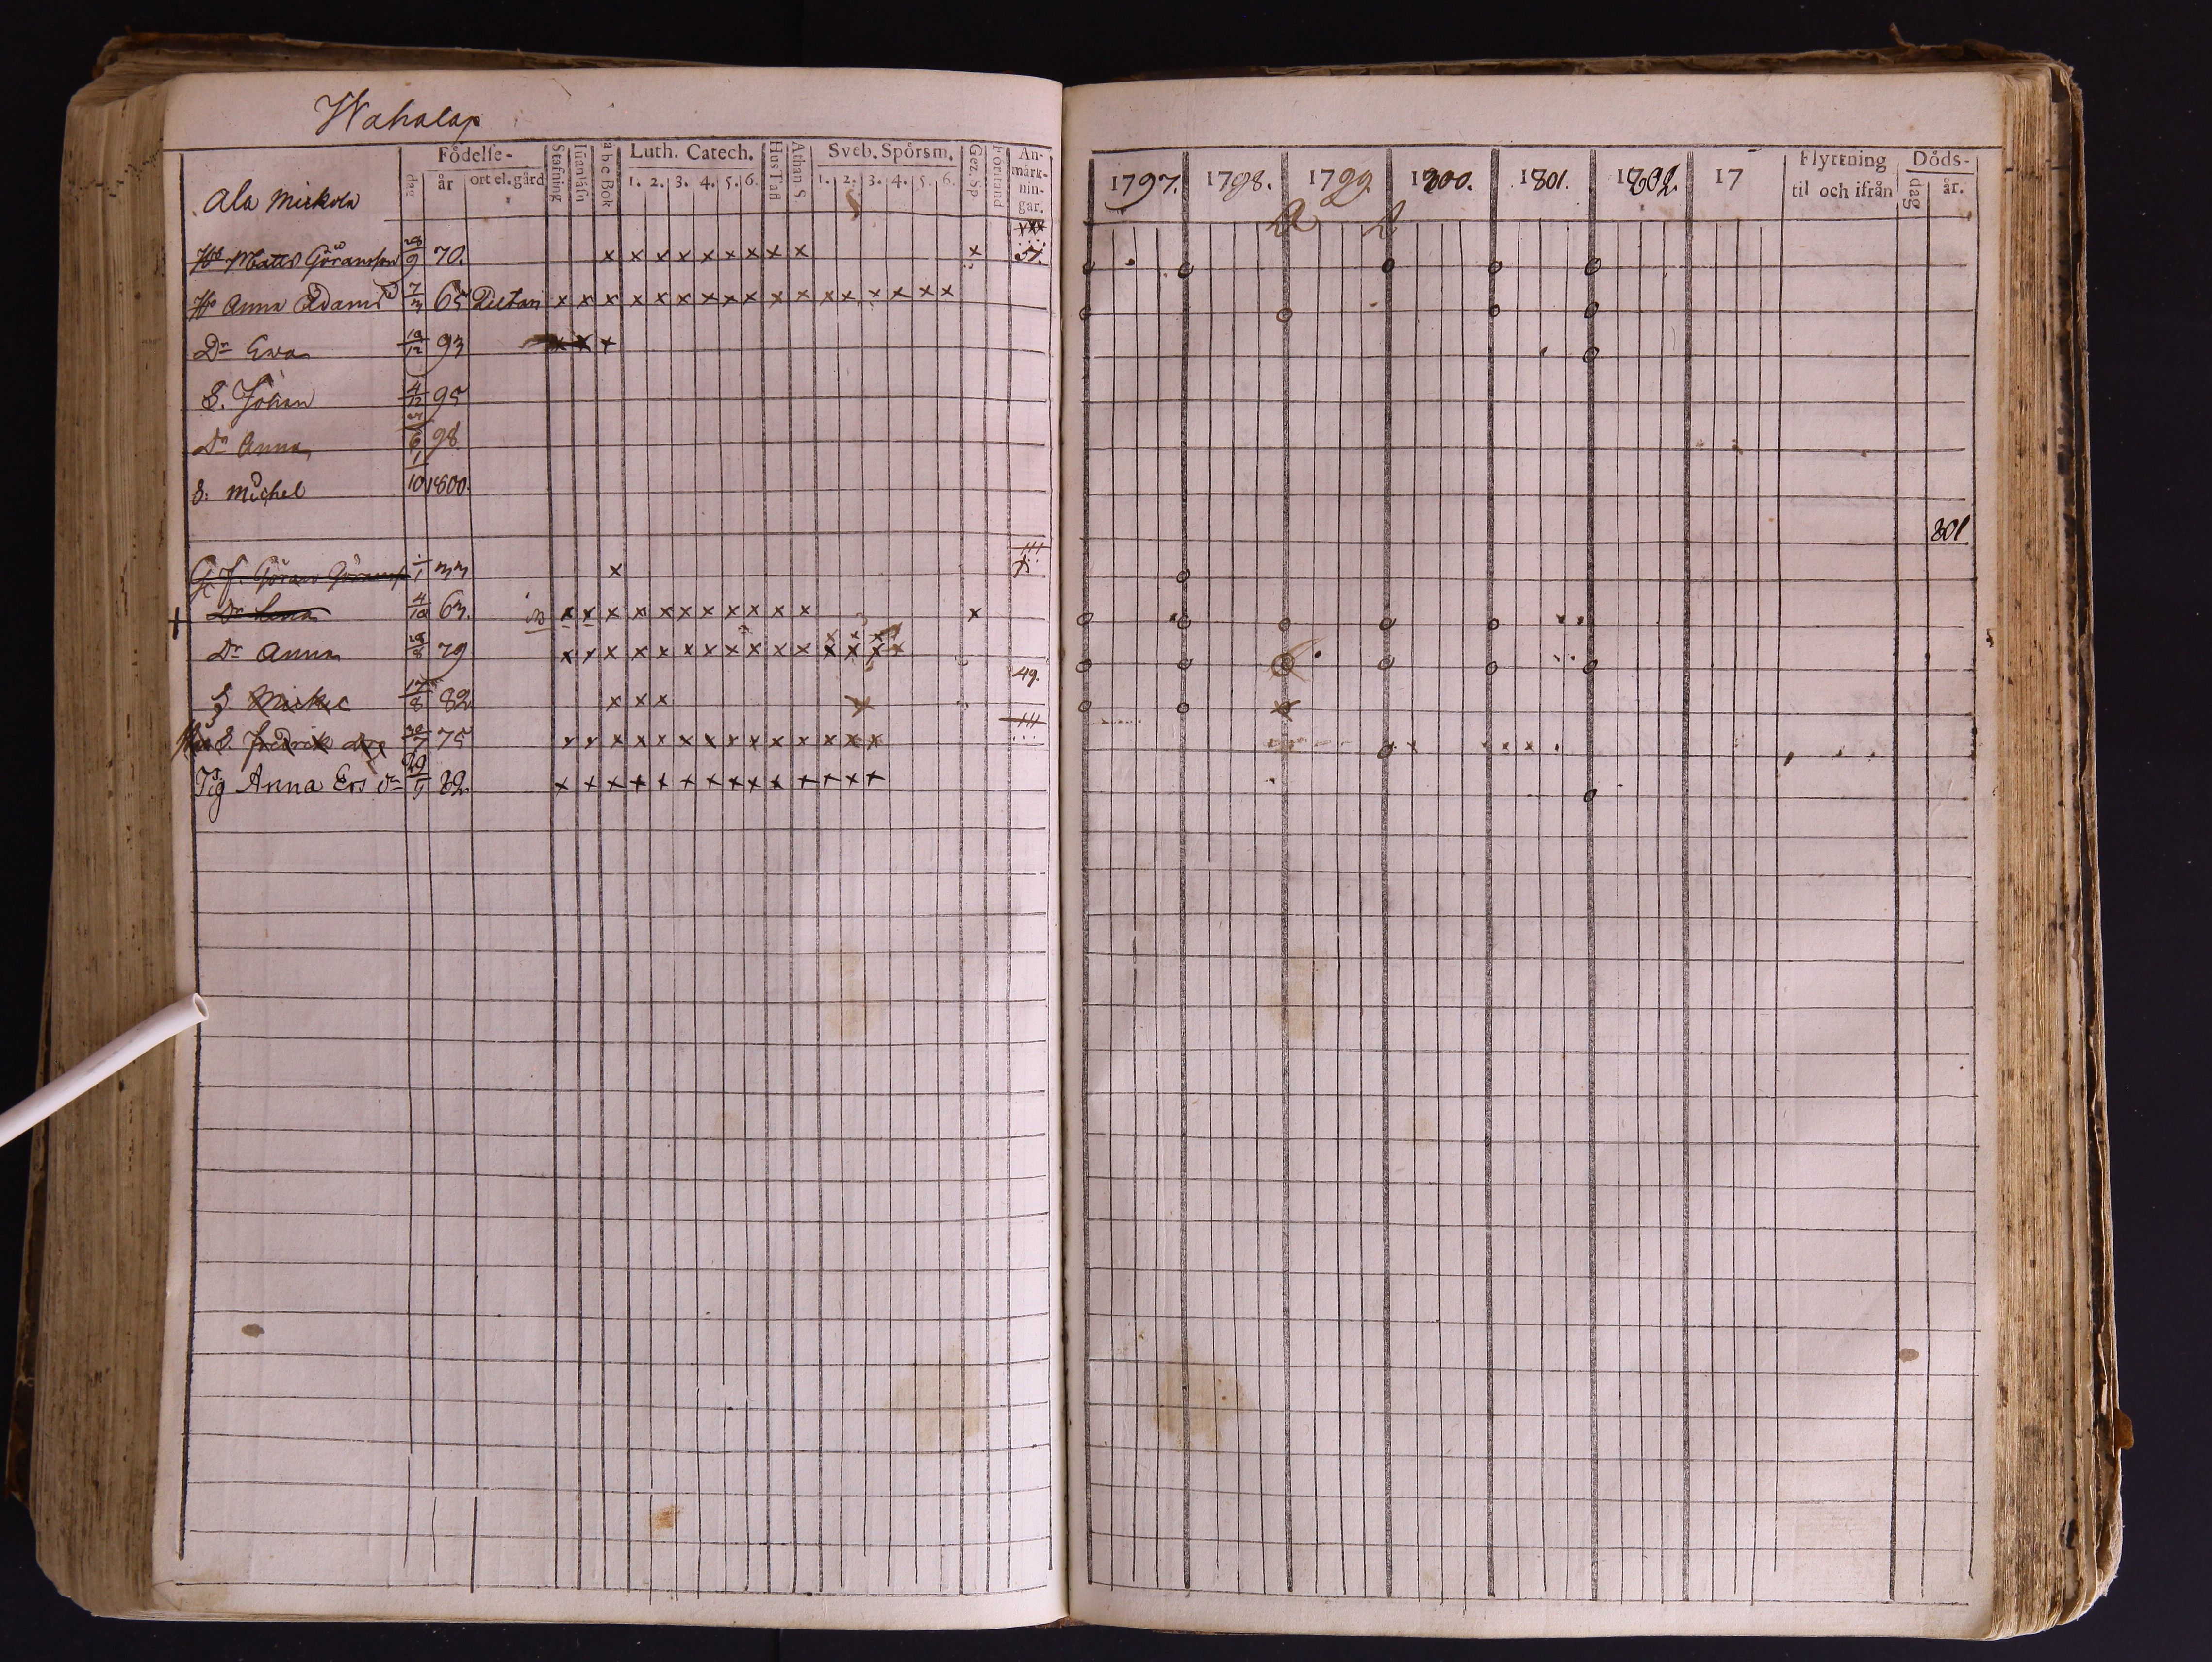 Wahalap
Födelse-
dag år ort el. gård
Stafning Innanläsn a b c Bok
Luth. Catech.
1. 2. 3. 4. 5. 6.
Hus Tafl Athan S
Sveb. Spörsm.
1. 2. 3. 4. 5. 6.
Gez. Sp Förstånd
An-
märk-
nin-
gar.
Ala Mickola
Matts Göransson 28/9 70. x x x x x x x x x x 51.
Anna Adams 7/3 65 x x x x x x x x x x x x x x x x x
Dr Ewa 19/12 93 x x x
S. Johan 4/12 95
Dr Anna 6 98
S. Michel 1/10 1800.
G. F. Göran Görans 1/1 33 x
Dr Lena 4/10 63. x x x x x x x x x x x x
Dr Anna 8 79 x x x x x x x x x x x x x x x
49.
S 17/8 82 x x x
S. Fredrik 7 75 x x x x x x x x x x x x x x
Pig Anna Ers dr 29/9 82 x x x x x x x x x x x x x x
1797. 1798. 1799. 1800. 1801. 1802. 17
Flyttning
til och ifrån
Döds-
dag år.
801.